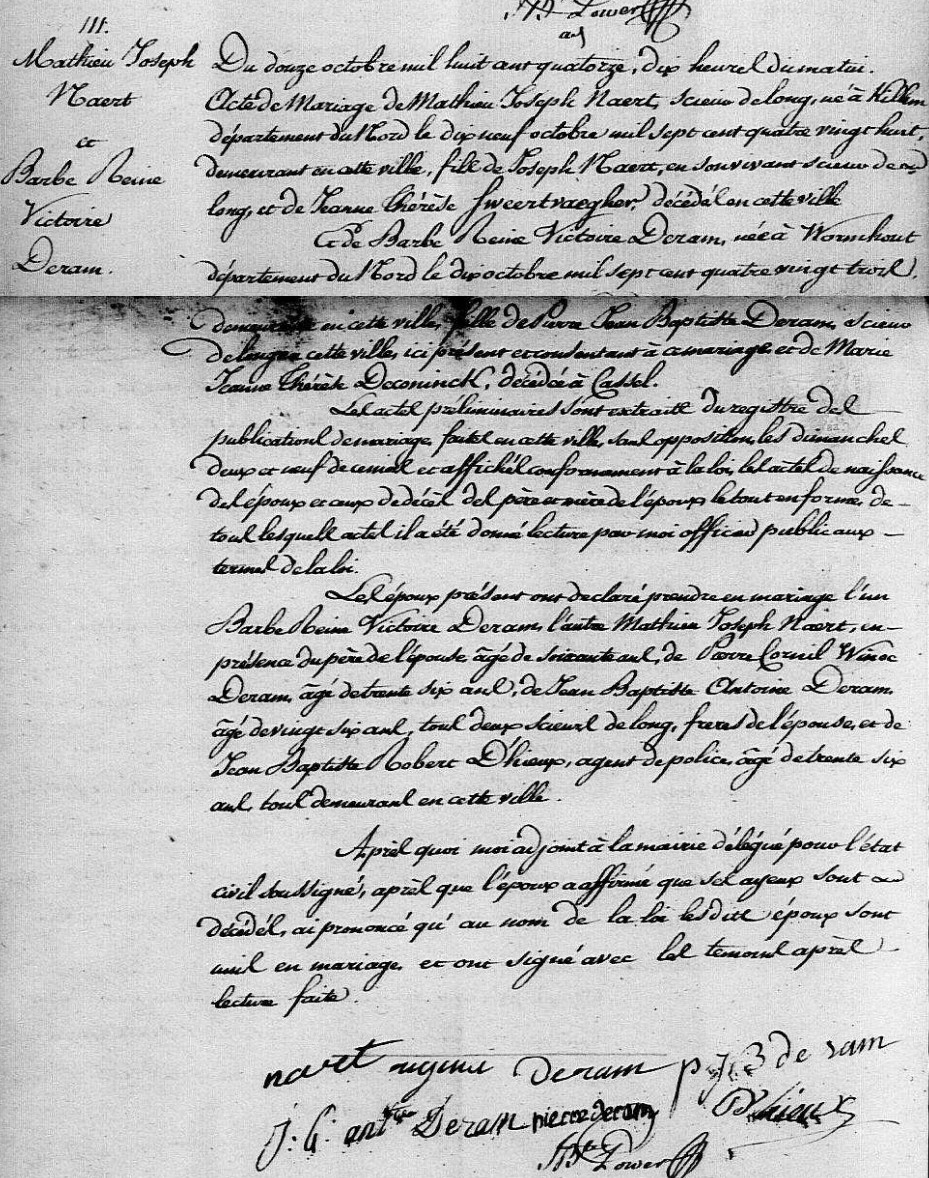 111.
Mathieu Joseph
Naert
et
Barbe Reine
Victoire
Deram.
Du douze octobre mil huit cent quatorze, dix heures du matin.
Acte de Mariage de Mathieu Joseph Naert, scieur de long, né à Killem
département du Nord le dix neuf octobre mil sept cent quatre vingt huit,
demeurant en cette ville, fils de Joseph Naert, en son vivant scieur de
long, et de Jeanne thérèse Sweertvaegher, décédés en cette ville
Et de Barbe Reine Victoire Deram, née à Wormhout
département du Nord le dix octobre mil sept cent quatre vingt trois,
demeurante en cette ville, fille de Pierre Jean Baptiste Deram, scieur
de long en cette ville, ici présent et consentant à ce mariage et de Marie
Jeanne thérèse Deconinck, décédée à Cassel.
Les actes préliminaires sont extraits du registre des
publications de mariage, faites en cette ville, sans opposition, les dimanches
deux et neuf de ce mois et affichés conformément à la loi, les actes de naissance
des époux et ceux de décès des père et mère de l'époux le tout en forme, de
tous lesquels actes il a été donné lecture par moi officier public aux
termes de la loi.
Les époux présents ont declaré prendre en mariage l'un
Barbe Reine Victoire Deram, l'autre Mathieu Joseph Naert, en
présence du père de l'épouse, âgé de soixante ans, de Pierre Cornil Winoc
Deram, âgé de trente six ans, de Jean Baptiste Antoine Deram,
âgé de vingt six ans, tous deux scieurs de long, freres de l'épouse, et de
Jean Baptiste Robert D'hieux, agent de police, âgé de trente six
ans, tous demeurans en cette ville.
Après quoi moi adjoint à la mairie délégué pour l'état
civil soussigné, après que l'époux a affirmé que ses ayeux sont
décédés, ai prononcé qu'au nom de la loi lesdits époux sont
unis en mariage, et ont signé avec les temoins après
lecture faite.
naert regine Deram p J B de ram
J. b. antne Deram pierre deram Dhieux